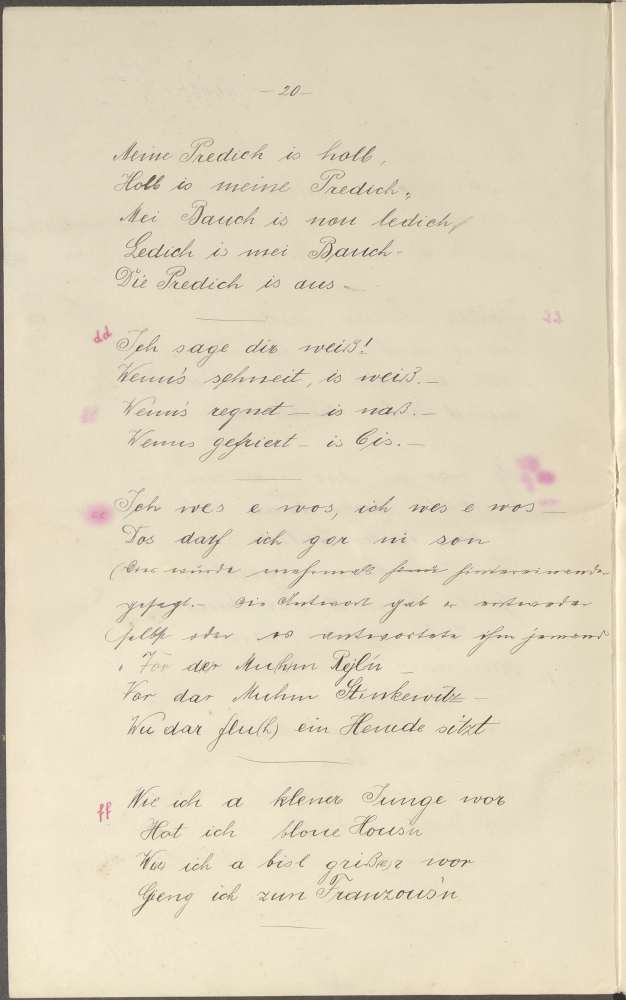 - 20 -
Meine Predich is holb,
Holb is meine Predich,
Mei Bauch is nou ledich,
Ledich is mei Bauch -
Die Predich is aus -
dd Ich sage dir weiß!
Wenn's schneit, is weiß. -
Wenns regnet - is naß. -
Wenns gefriert - is Eis. -
Ich wes e wos, ich wes e wos -
Dos darf ich gor ni son
(Dies wurde mehrmals hintereinander
gesagt. - Die Antwort gab er entweder
selbst oder es antwortete ihm jemand
Vor der Muhm Rejln -
Vor dar Muhm Stinkewitz -
Wu dar flu(h) ein Hemde sitzt
ff Wie ich a klener Junge wor
Hot ich bloue Housn
Wie ich a bisl grißer wor
Geng ich zun Franzous'n